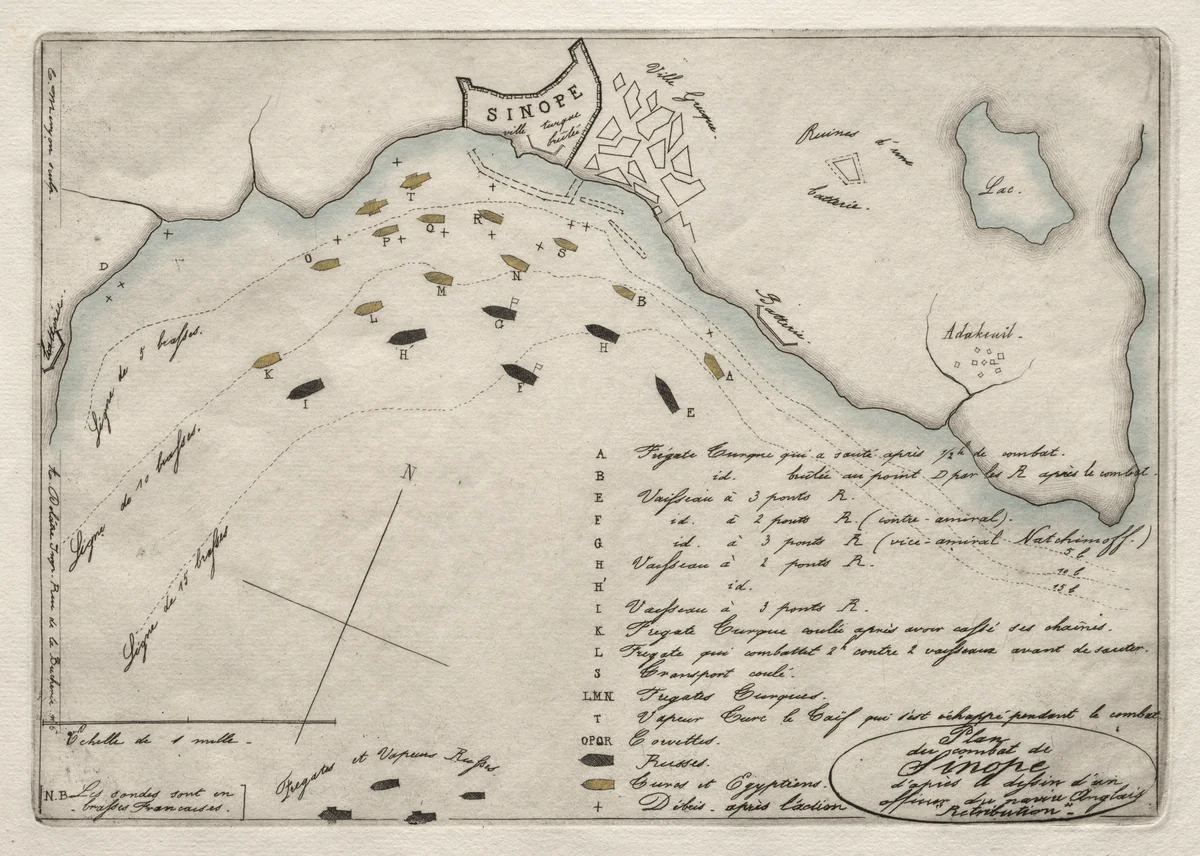 C. Meryon sculp.
SINOPE
ville turque
brûlée
Ville Grecque.
Ruines d'une
batterie.
Lac.
T
O
P
Q
R
S
D
M
N
B
Batterie
Batterie.
L
G
H'
H
Adakeuil.
K
I
F
A
E
Ligne de 5 brasses.
Ligne de 10 brasses.
Ligne de 15 brasses
N
A Frégate Turque qui a sauté après 1/2 h de combat.
B id. brûlée au point D par les R après le combat.
E Vaisseau à 3 ponts R.
F id. à 2 ponts R. (contre-amiral).
G id. à 3 ponts R (vice-amiral Natchimoff.)
H Vaisseau à 2 ponts R.
H' id.
I Vaisseau à 3 ponts R.
K Fregate Turque coulée après avoir cassé ses chaînes.
L Fregate qui combattet 2h contre 2 vaisseaux avant de sauter.
S Transport coulé.
L.M.N. Fregates Turques.
T Vapeur Turc le Taïf qui s'est échappé pendant le combat
OPQR Corvettes.
Russes.
Turcs et Egyptiens.
+ Débris après l'action
5 b
10 b
15 b
A. Delâtre Impr. Rue de la Bucherie, n° 6
Echelle de 1 mille.
N.B. Les sondes sont en
brasses Francaises.
Fregates et Vapeurs Russes
Plan
du combat de
Sinope
d'après le dessin d'un
officier du navire Anglais
"Retribution".